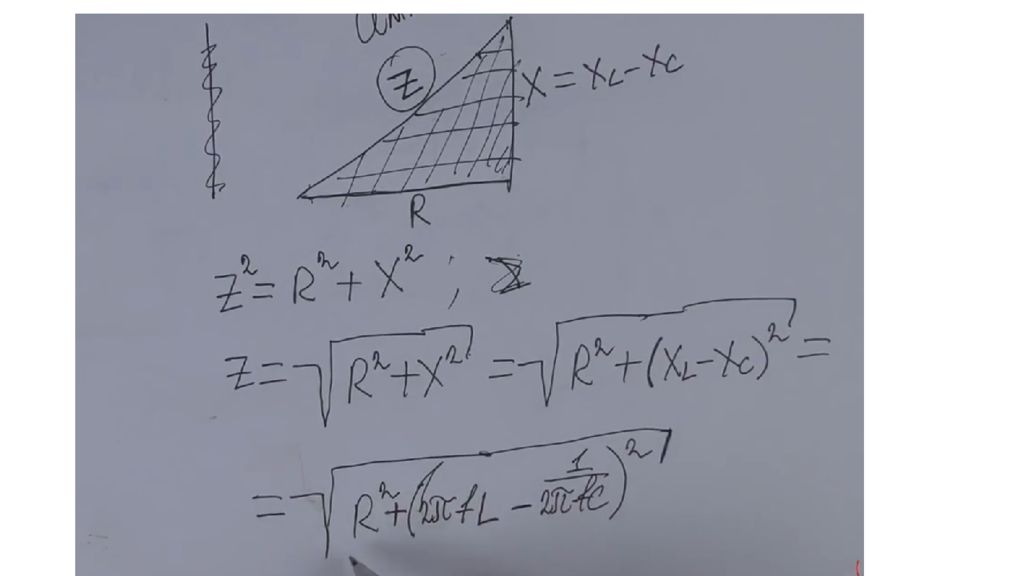 Z
X = XL - XC
R
Z² = R² + X² ;
Z = √(R² + X²) = √(R² + (XL - XC)²) =
= √(R² + (2πfL - 1/(2πfC))²)